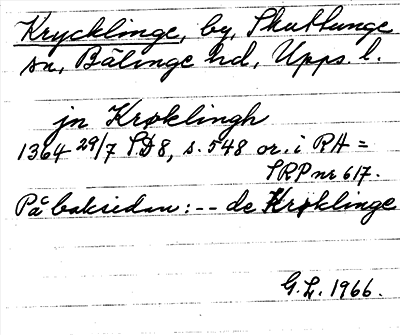 Krycklinge, by, Skuttunge
sn, Bälinge hd, Upps. l.
jn Krøklingh
1364 29/7 SD8, s. 548 or. i RA =
SRP nr 617.
På baksidan: -- de Krøklinge
G.L. 1966.